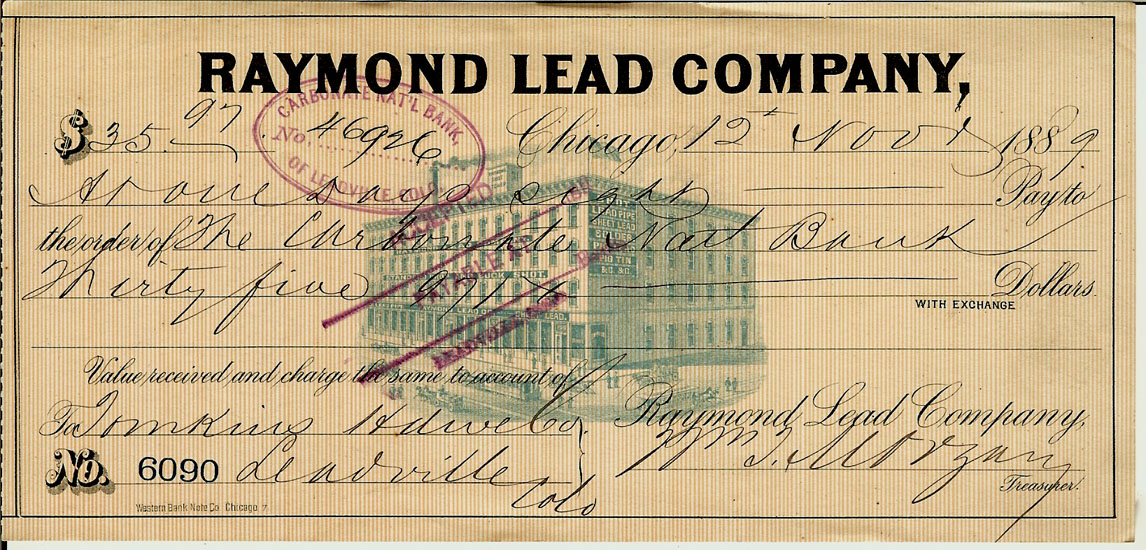 RAYMOND LEAD COMPANY,
CARBONATE NAT'L BANK,
No. 46926
OF LEADVILLE COLO.
$35.97 Chicago, 12th Nov 1889
At one days sight Pay to
the order of The Carbonate Natl Bank
Thirty five 97/100 Dollars.
WITH EXCHANGE
ACCEPTED
PAYABLE AT
Value received and charge the same to account of
To Tomkins Hdwe Co Raymond Lead Company,
No. 6090 Leadville Colo Wm. I. Morgan
Treasurer.
Western Bank Note Co. Chicago 7
LEAD PIPE
PIG TIN
&C. &C.
BUCK SHOT.